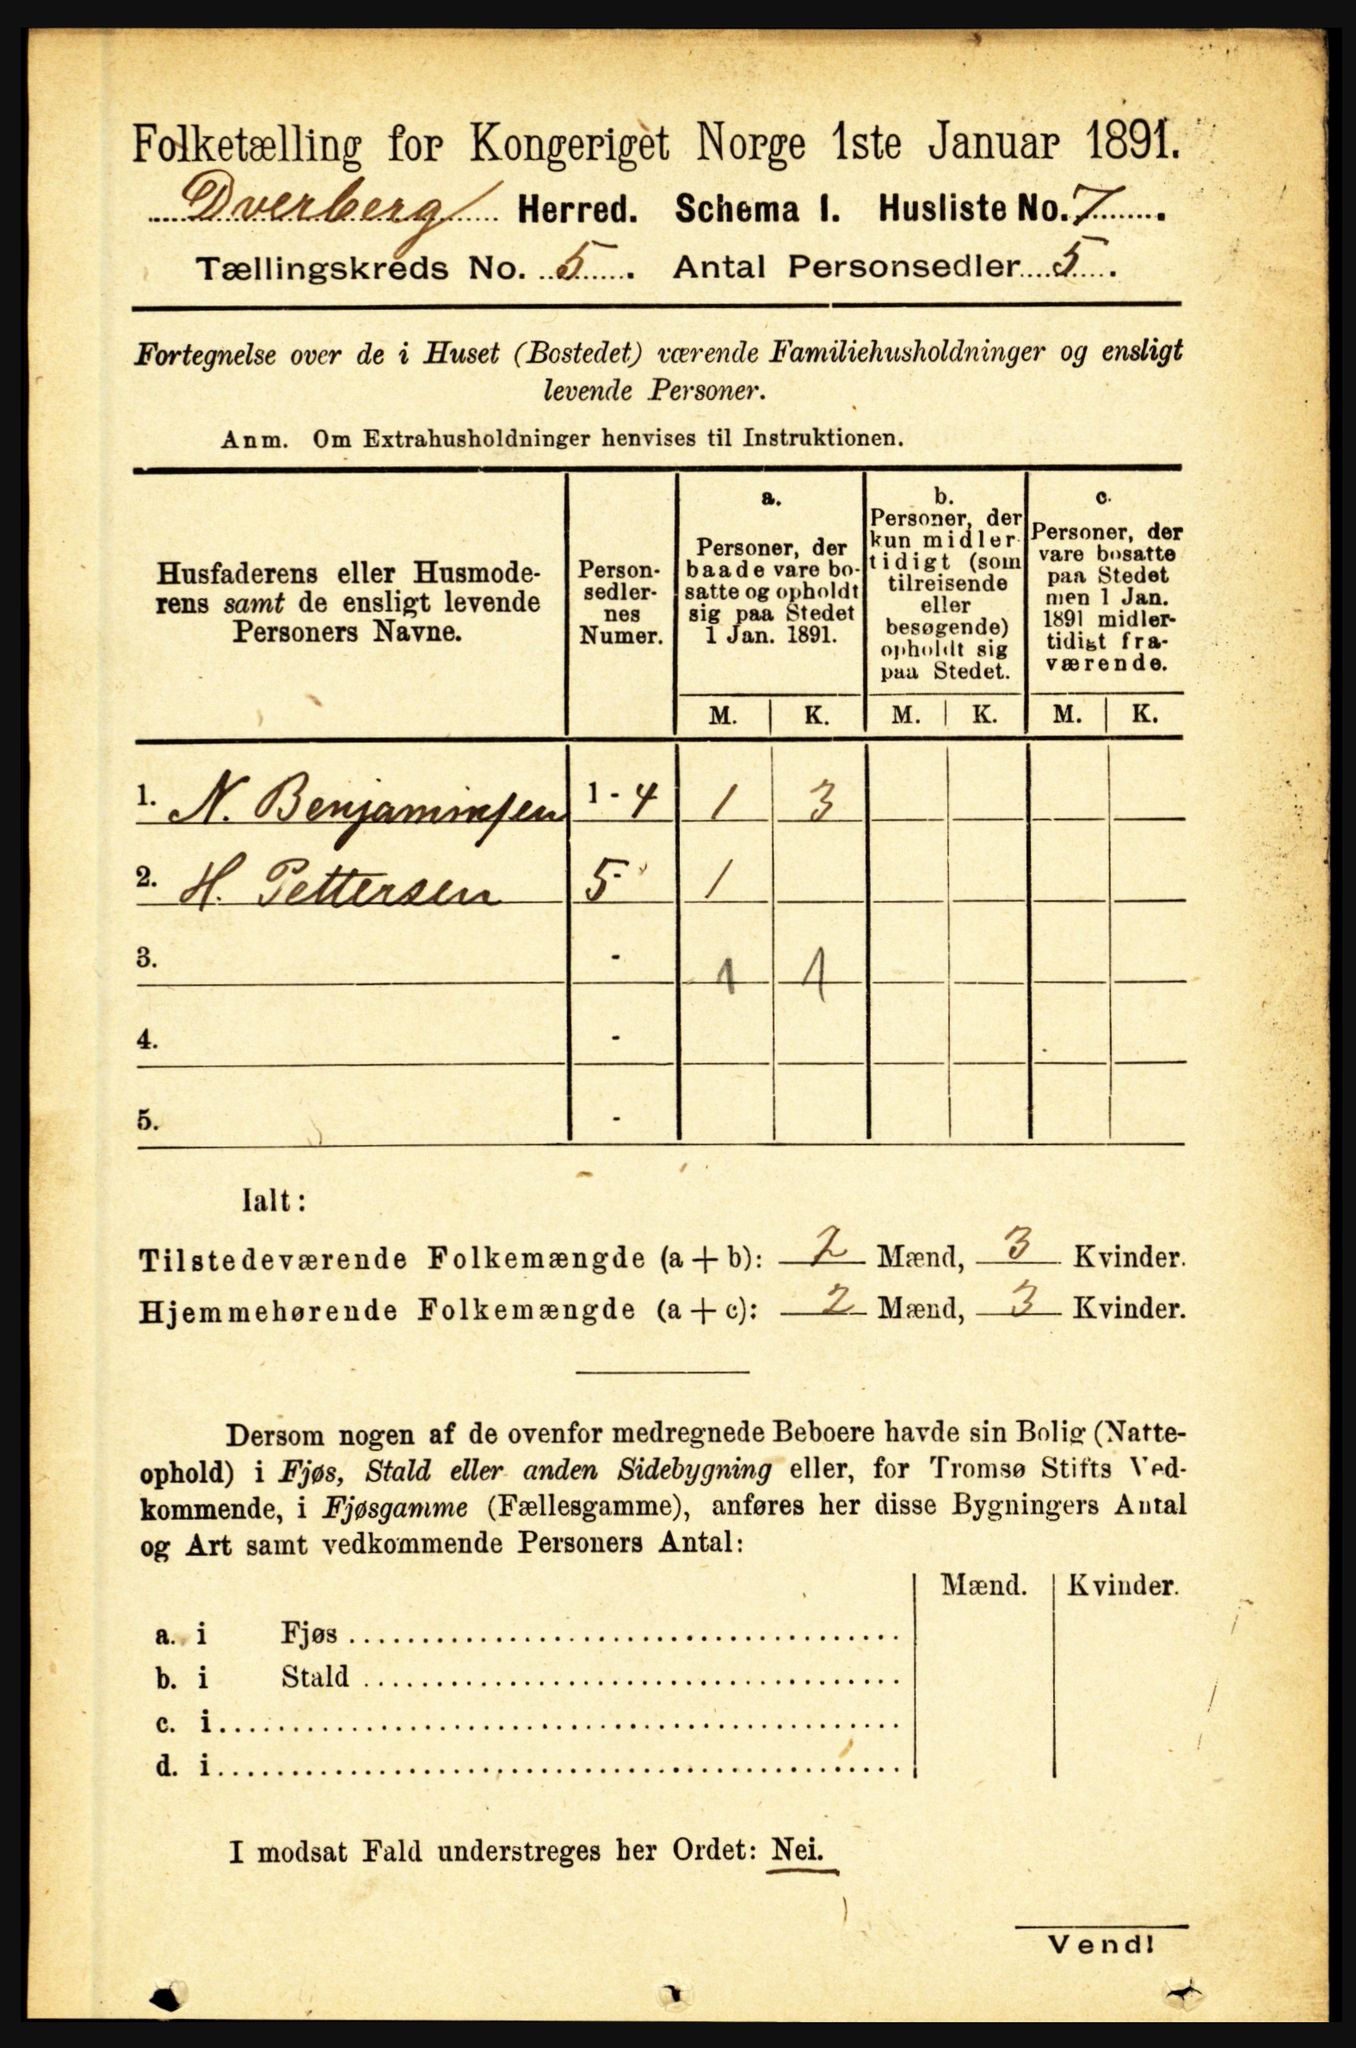 Folketælling for Kongeriget Norge 1ste Januar 1891.
Dverberg Herred. Schema I. Husliste No. 7.
Tællingskreds No. 5. Antal Personsedler 5.
Fortegnelse over de i Huset (Bostedet) værende Familiehusholdninger og ensligt
levende Personer.
Anm. Om Extrahusholdninger henvises til Instruktionen.
Husfaderens eller Husmode-
rens samt de ensligt levende
Personers Navne.
Person-
sedler-
nes
Numer.
a.
Personer, der
baade vare bo-
satte og opholdt
sig paa Stedet
1 Jan. 1891.
b.
Personer, der
kun midler-
tidigt (som
tilreisende
eller
besøgende)
opholdt sig
paa Stedet.
c.
Personer, der
vare bosatte
paa Stedet
men 1 Jan.
1891 midler-
tidigt fra-
værende.
M. K. M. K. M. K.
1. N. Benjaminsen 1 - 4 1 3
2. H. Pettersen 5 1
3. - 1 1
4. -
5. -
Ialt:
Tilstedeværende Folkemængde (a + b): 2 Mænd, 3 Kvinder.
Hjemmehørende Folkemængde (a + c): 2 Mænd, 3 Kvinder.
Dersom nogen af de ovenfor medregnede Beboere havde sin Bolig (Natte-
ophold) i Fjøs, Stald eller anden Sidebygning eller, for Tromsø Stifts Ved-
kommende, i Fjøsgamme (Fællesgamme), anføres her disse Bygningers Antal
og Art samt vedkommende Personers Antal:
Mænd. Kvinder.
a. i Fjøs
b. i Stald
c. i
d. i
I modsat Fald understreges her Ordet: Nei.
Vend!